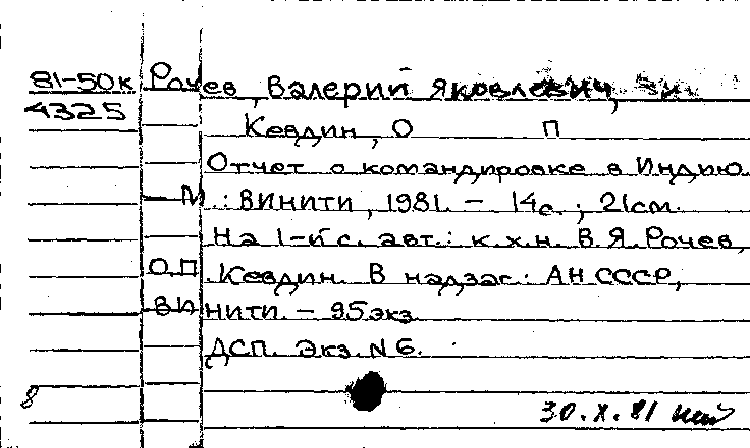 81-50к Рочев, Валерий Яковлевич,
4325
Кевдин, О П
Отчет о командировке в Индию.
— М.: ВИНИТИ, 1981. – 14с.; 21см.
На 1-й с. авт.: к.х.н. В.Я.Рочев,
О.П.Кевдин. В надзаг.: АН СССР,
ВИНИТИ. – 95экз.
ДСП. Экз. N 6.
8
30.X.81